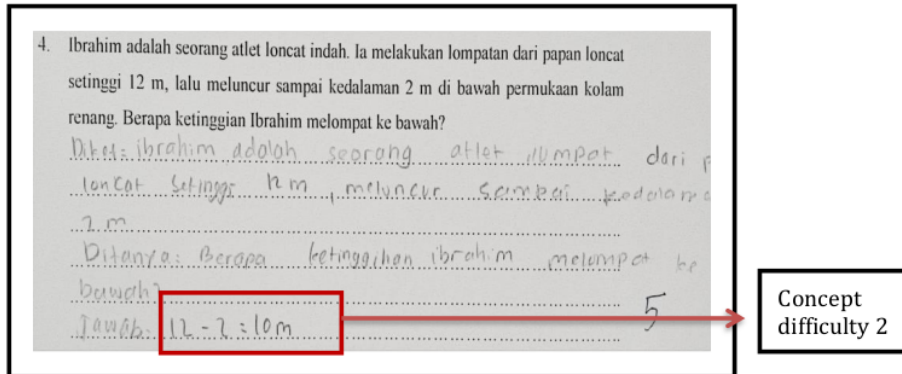 4. Ibrahim adalah seorang atlet loncat indah. Ia melakukan lompatan dari papan loncat
setinggi 12 m, lalu meluncur sampai kedalaman 2 m di bawah permukaan kolam
renang. Berapa ketinggian Ibrahim melompat ke bawah?
ibrahim adalah seorang atlet lumpat dari
loncat setinggi 12 m, meluncur sampai
2 m
Ditanya: Berapa ibrahim melompat ke
bawah?
Jawab: 12 - 2 = 10 m
5
Concept
difficulty 2